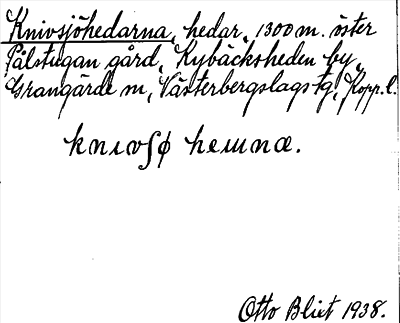 Knivsjöhedarna, hedar, 1300 m. öster
Pålstugan gård, Rybäcksheden by,
Grangärde sn, Västerbergslags tg, Kopp. l.
knɩvʃø heɯnæ.
Otto Blixt 1938.